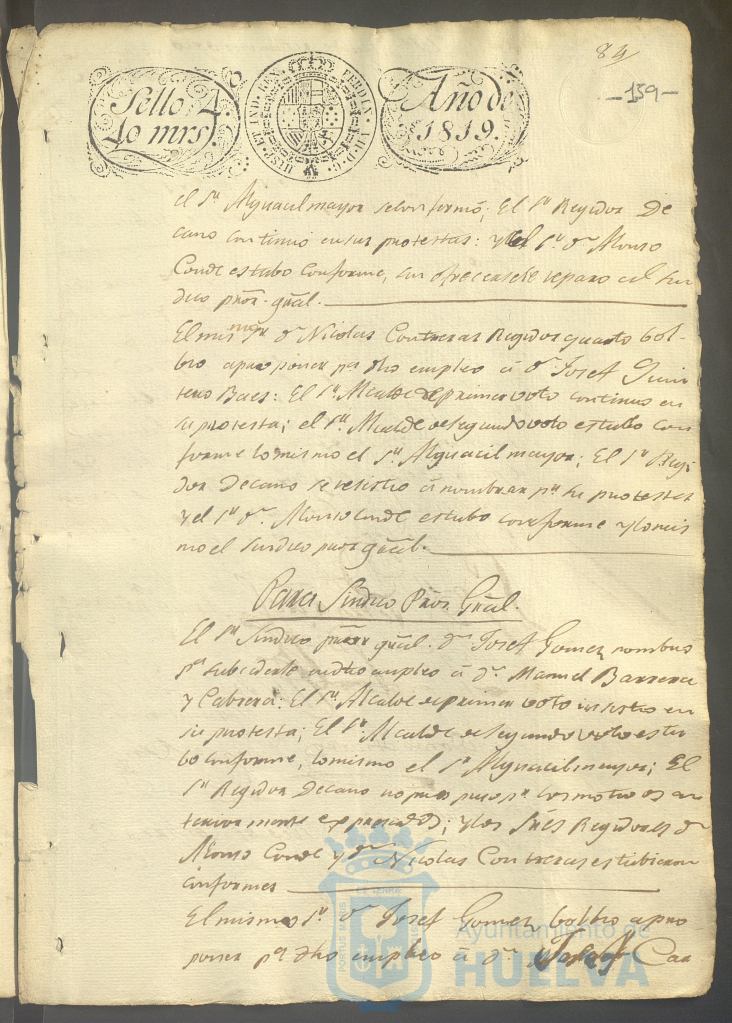 84
-159-
Sello 4.
40 mrs.
HISP. ET IND. REX. FERDIN. VII. D. G.
Año de
1819.
el Sr. Alguacil mayor se conformó; El Sr. Regidor De
cano continuó en sus protestas: y el Sr. Dn. Alonso
Conde estubo conforme, sin ofrecersele reparo al Sin
dico Prōr. grāl.
El mismo Sr. Dn. Nicolas Contreras Regidor quarto bol-
bio a proponer pa. dho empleo á Dn. Josef Quin
tero Baes: El Sr. Alcalde de primer voto continuo en
su protesta; el Sr. Alcalde de segundo voto estubo con
forme lo mismo el Sr. Alguacil mayor; El Sr. Regi
dor Decano se resistio á nombrar pr. su protesta
y el Sr. Dn. Alonso Conde estubo conforme y lo mis
mo el Sindico prōr grāl.
Para Sindico Prōr. Grāl.
El Sr. Sindico prōr grāl. Dn. Josef Gomez nombro
pa. subcederle en dho empleo á Dn. Manuel Barrera
y Cabrera: El Sr. Alcalde de primer voto insistio en
su protesta; El Sr. Alcalde de segundo voto estu
bo conforme, lo mismo el Sr. Alguacil mayor; El
Sr. Regidor Decano no propuso pr. los motivos an
teriormente expresados; y los Sres Regidores Dn.
Alonso Conde y Dn. Nicolas Contreras estubieron
conformes
El mismo Sr. Dn. Josef Gomez bolbio a pro
poner pa. dho empleo á Dn. Josef Caa
PORTUS MARIS ET TERRE
Ayuntamiento de
HUELVA